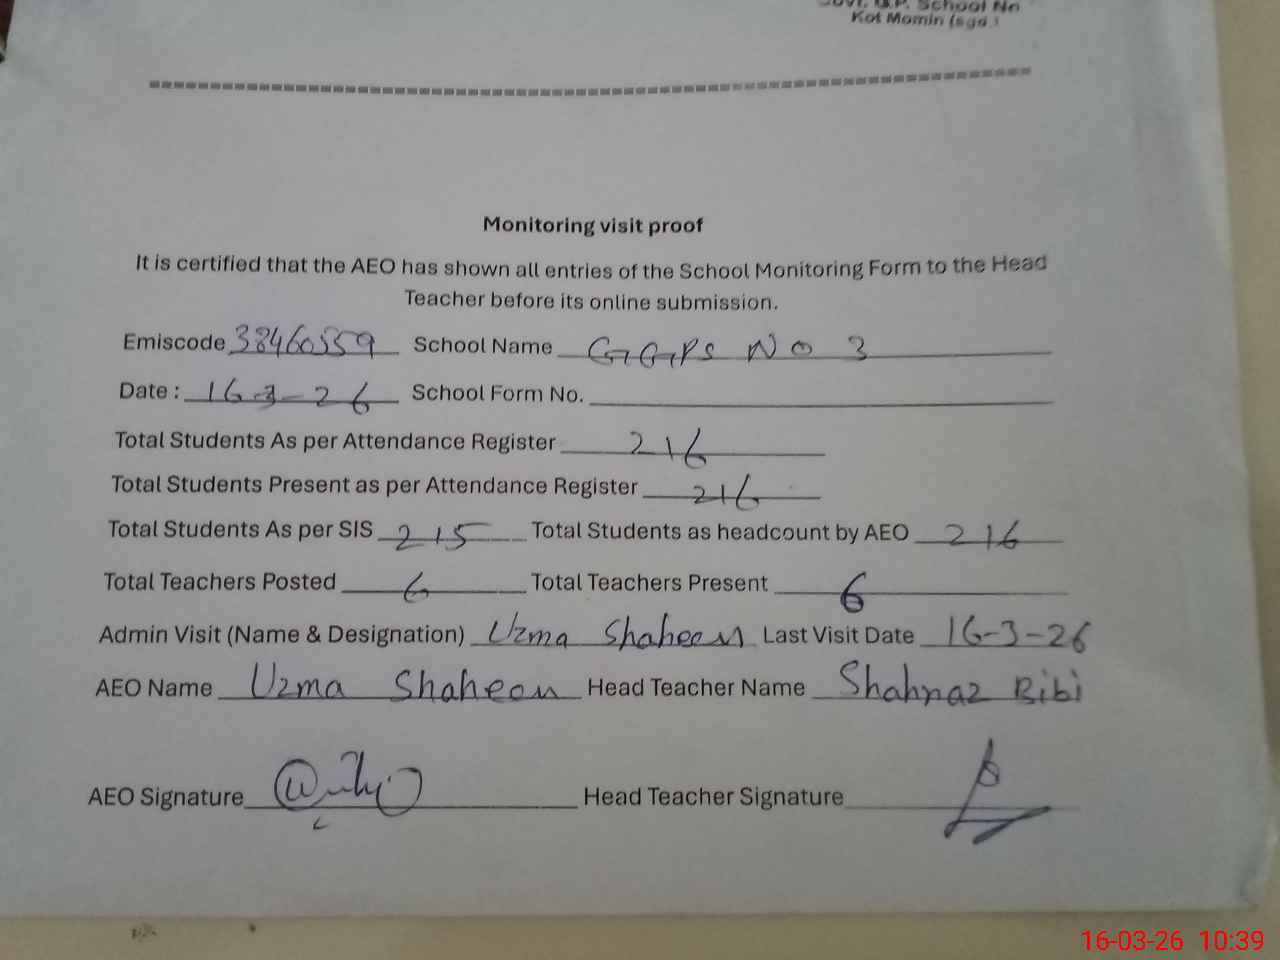 Govt. G.P. School No
Kot Momin (sgd.)
Monitoring visit proof
It is certified that the AEO has shown all entries of the School Monitoring Form to the Head
Teacher before its online submission.
Emiscode 38460559 School Name GGPS NO 3
Date : 16-3-26 School Form No.
Total Students As per Attendance Register 216
Total Students Present as per Attendance Register 216
Total Students As per SIS 215 Total Students as headcount by AEO 216
Total Teachers Posted 6 Total Teachers Present 6
Admin Visit (Name & Designation) Uzma Shaheen Last Visit Date 16-3-26
AEO Name Uzma Shaheen Head Teacher Name Shahnaz Bibi
AEO Signature Head Teacher Signature
16-03-26 10:39